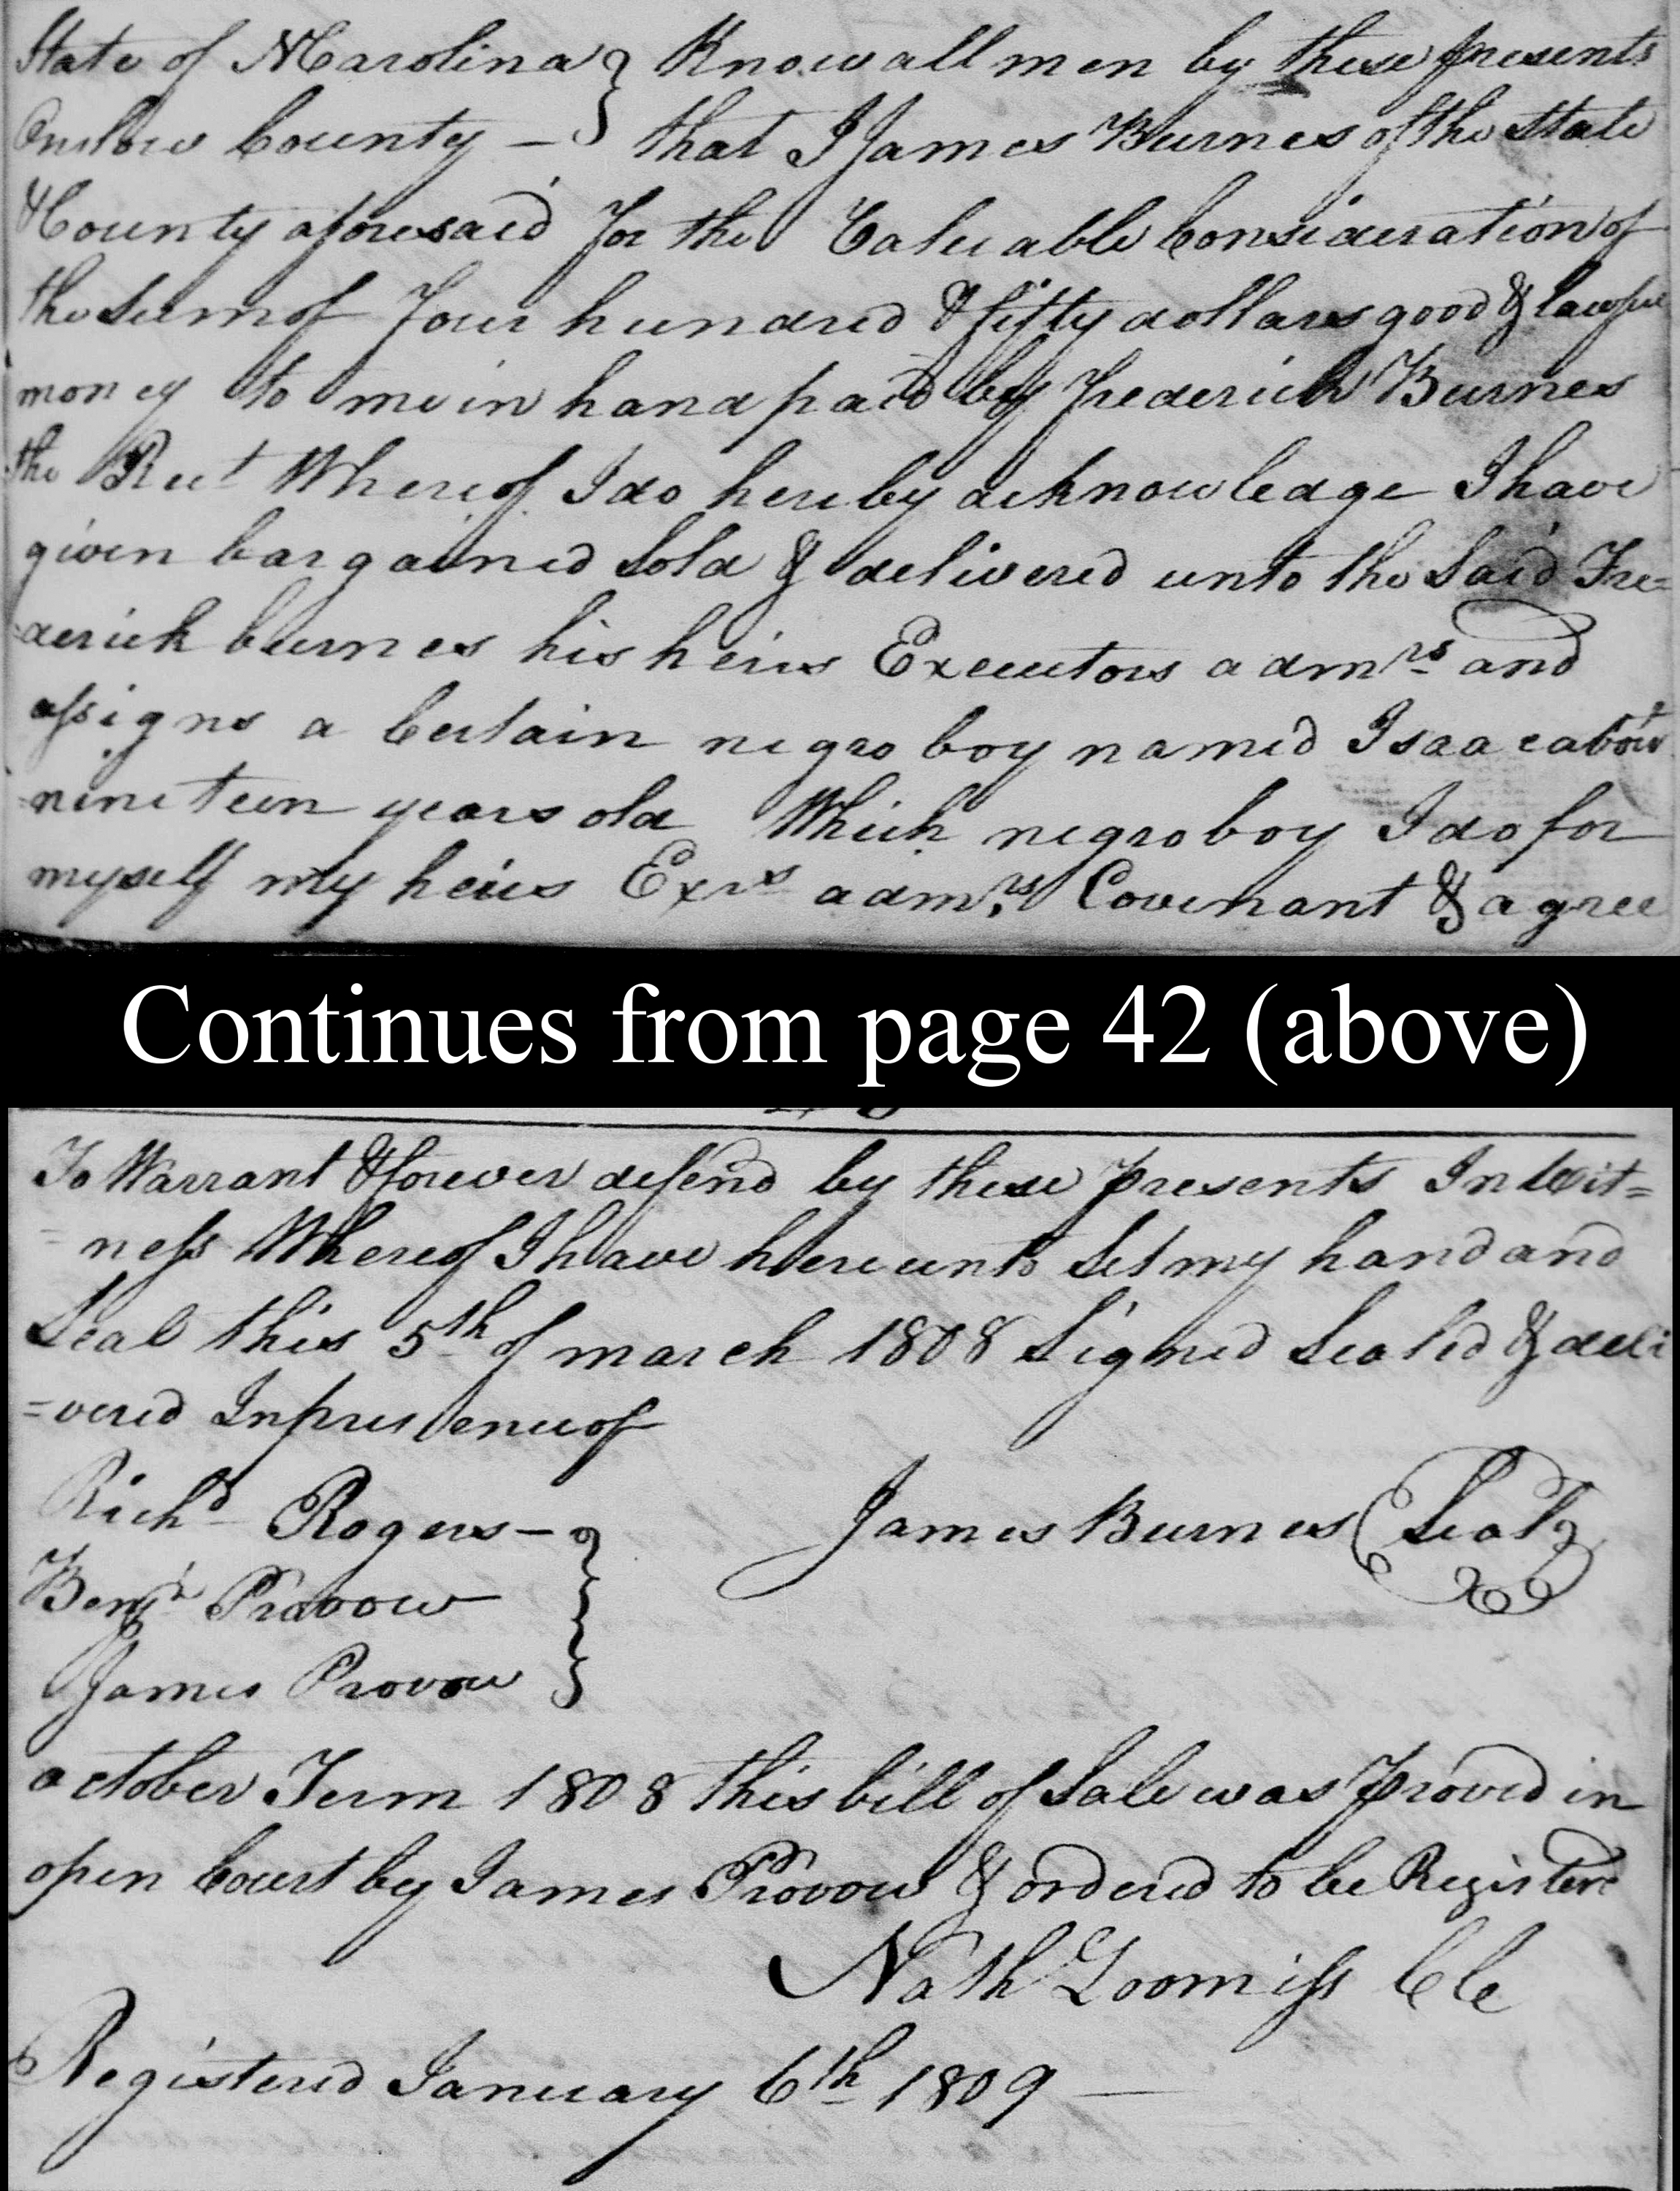 State of NCarolina } Know all men by these presents
Onslow County — } that I James Burnes of the State
& County aforesaid for the Valuable Consideration of
the Sum of Four hundred & fifty dollars good & lawful
money to me in hand paid by Frederick Burnes
the Rect Whereof I do hereby acknowledge I have
given bargained Sold & delivered unto the Said Fre=
=derick burnes his heirs Executors admrs and
assigns a Certain negro boy named Isaac about
nineteen years old Which negro boy I do for
myself my heirs Exrs admrs Covenant & agree
Continues from page 42 (above)
To Warrant & forever defend by these presents In Wit=
=ness Whereof I have hereunto Set my hand and
Seal this 5th of march 1808 Signed Sealed & deli
=vered In presence of
Richd Rogers —
James Burnes Seal
Benjn Provow
James Provow
october Term 1808 this bill of Sale was proved in
open Court by James Provow & ordered to be Registerd
Nath Loomiss Cle
Registered January 6th 1809 —